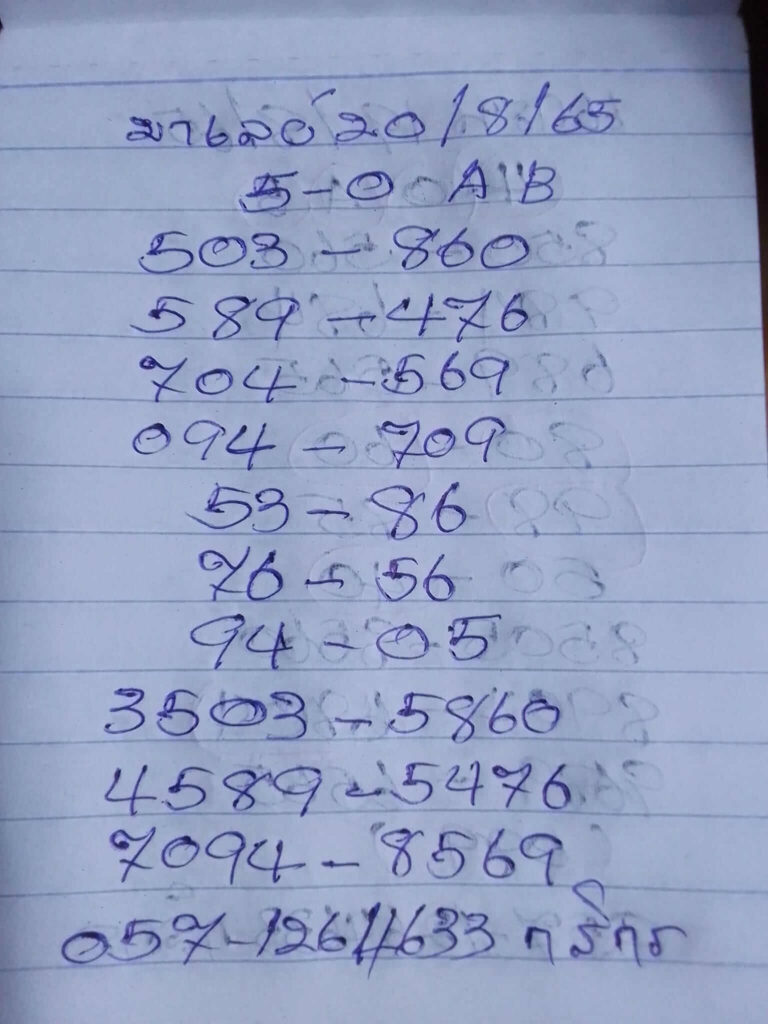 มาเลย์ 20/8/65
5-0 A B
503 - 860
589 - 476
704 - 569
094 - 709
53 - 86
76 - 56
94 - 05
3503 - 5860
4589 - 5476
7094 - 8569
057-1264633